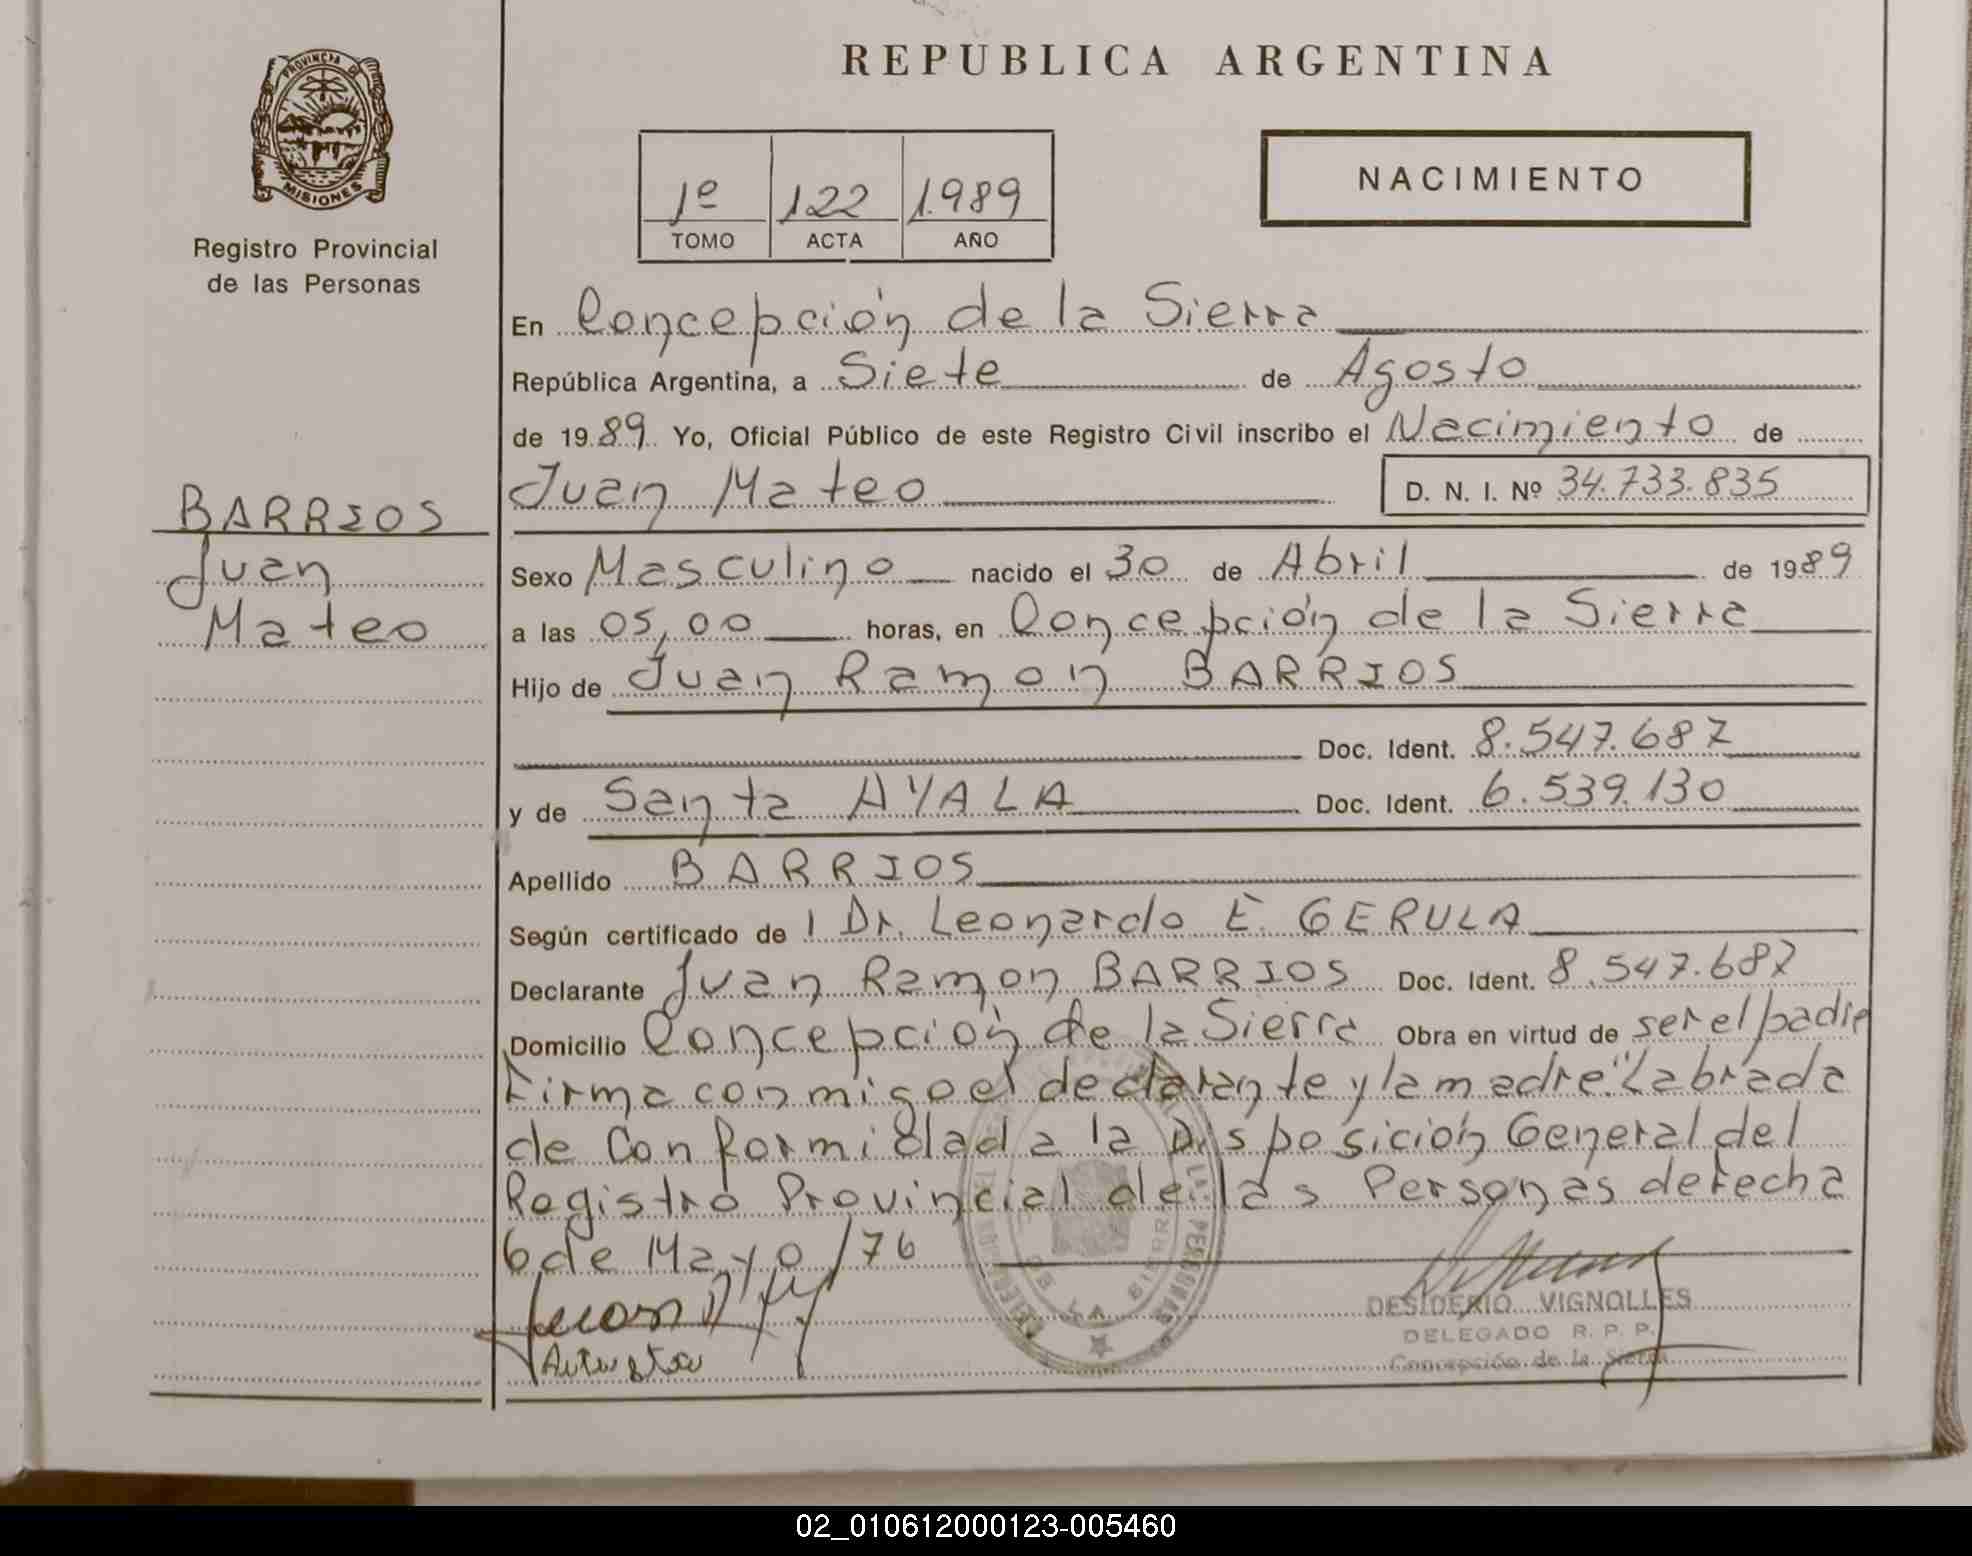 REPUBLICA ARGENTINA
PROVINCIA DE
MISIONES
Registro Provincial
de las Personas
1º 122 1.989
TOMO ACTA AÑO
NACIMIENTO
En Concepción de la Sierra
República Argentina, a Siete de Agosto
de 19 89 Yo, Oficial Público de este Registro Civil inscribo el Nacimiento de
Juan Mateo D. N. I. Nº 34.733.835
BARRIOS
Juan
Mateo
Sexo Masculino nacido el 30 de Abril de 1989
a las 05,00 horas, en Concepción de la Sierra
Hijo de Juan Ramon BARRIOS
Doc. Ident. 8.547.687
y de Santa AYALA Doc. Ident. 6.539.130
Apellido BARRIOS
Según certificado de l Dr. Leonardo E. GERULA
Declarante Juan Ramon BARRIOS Doc. Ident. 8.547.687
Domicilio Concepción de la Sierra Obra en virtud de ser el padre
Firma conmigo el declarante y la madre."Labrada
de Conformidad a la Disposición General del
Registro Provincial de las Personas de fecha
6 de Mayo/76
Juan
DESIDERIO VIGNOLLES
DELEGADO R. P. P.
Concepción de la Sierra
02_010612000123-005460